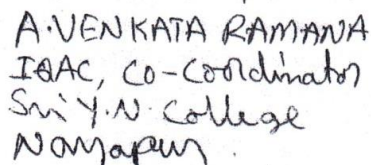 A. VENKATA RAMANA
IQAC, Co-Coordinator
Sri Y.N. College
Narsapur.